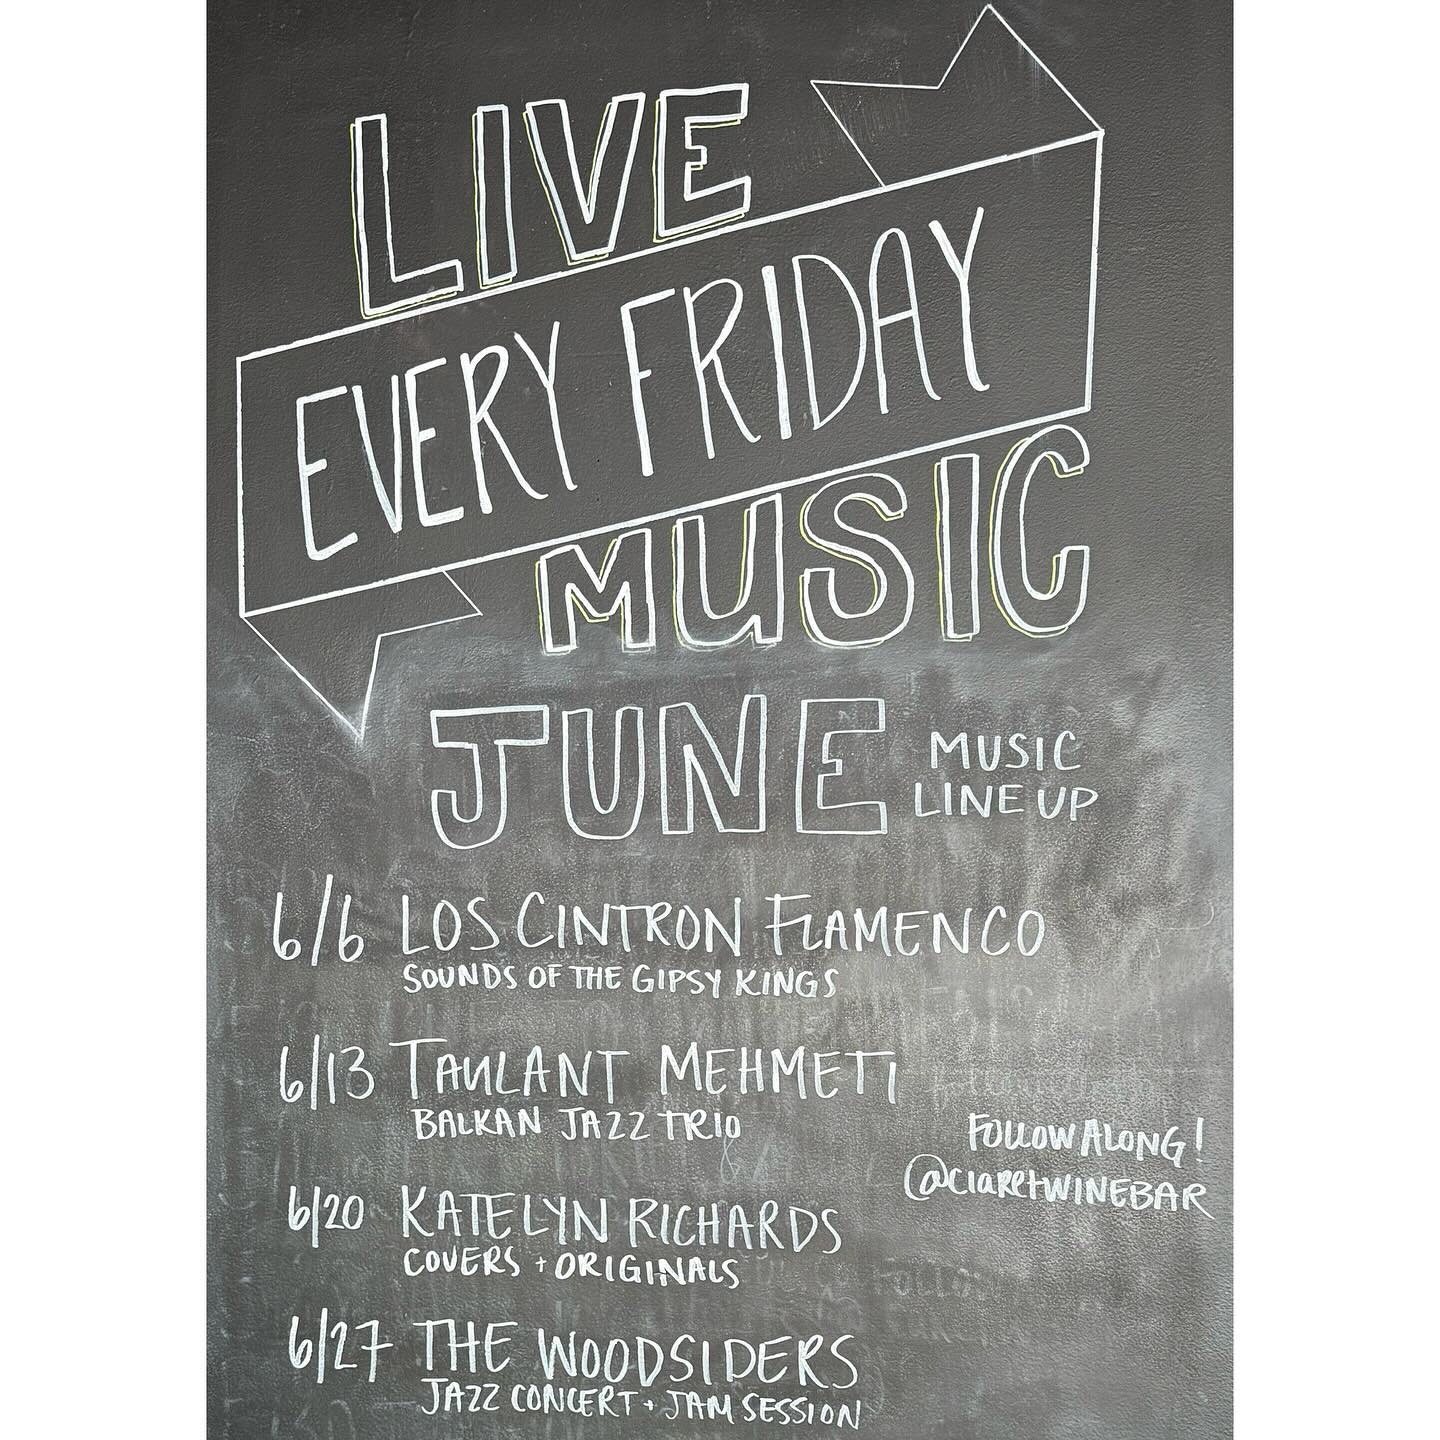 LIVE
EVERY FRIDAY
MUSIC
JUNE
MUSIC
LINE UP
6/6 LOS CINTRON FLAMENCO
SOUNDS OF THE GIPSY KINGS
6/13 TAULANT MEHMETI
BALKAN JAZZ TRIO
FOLLOW ALONG!
@ClaretWINEBAR
6/20 KATELYN RICHARDS
COVERS + ORIGINALS
6/27 THE WOODSIDERS
JAZZ CONCERT + JAM SESSION